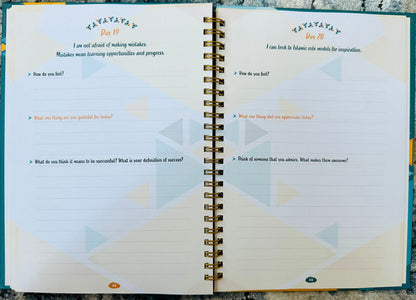 Day 19
I am not afraid of making mistakes.
Mistakes mean learning opportunities and progress.
How do you feel?
What one thing are you grateful for today?
What do you think it means to be successful? What is your definition of success?
Day 20
I can look to Islamic role models for inspiration.
How do you feel?
What one thing did you appreciate today?
Think of someone that you admire. What makes them awesome?